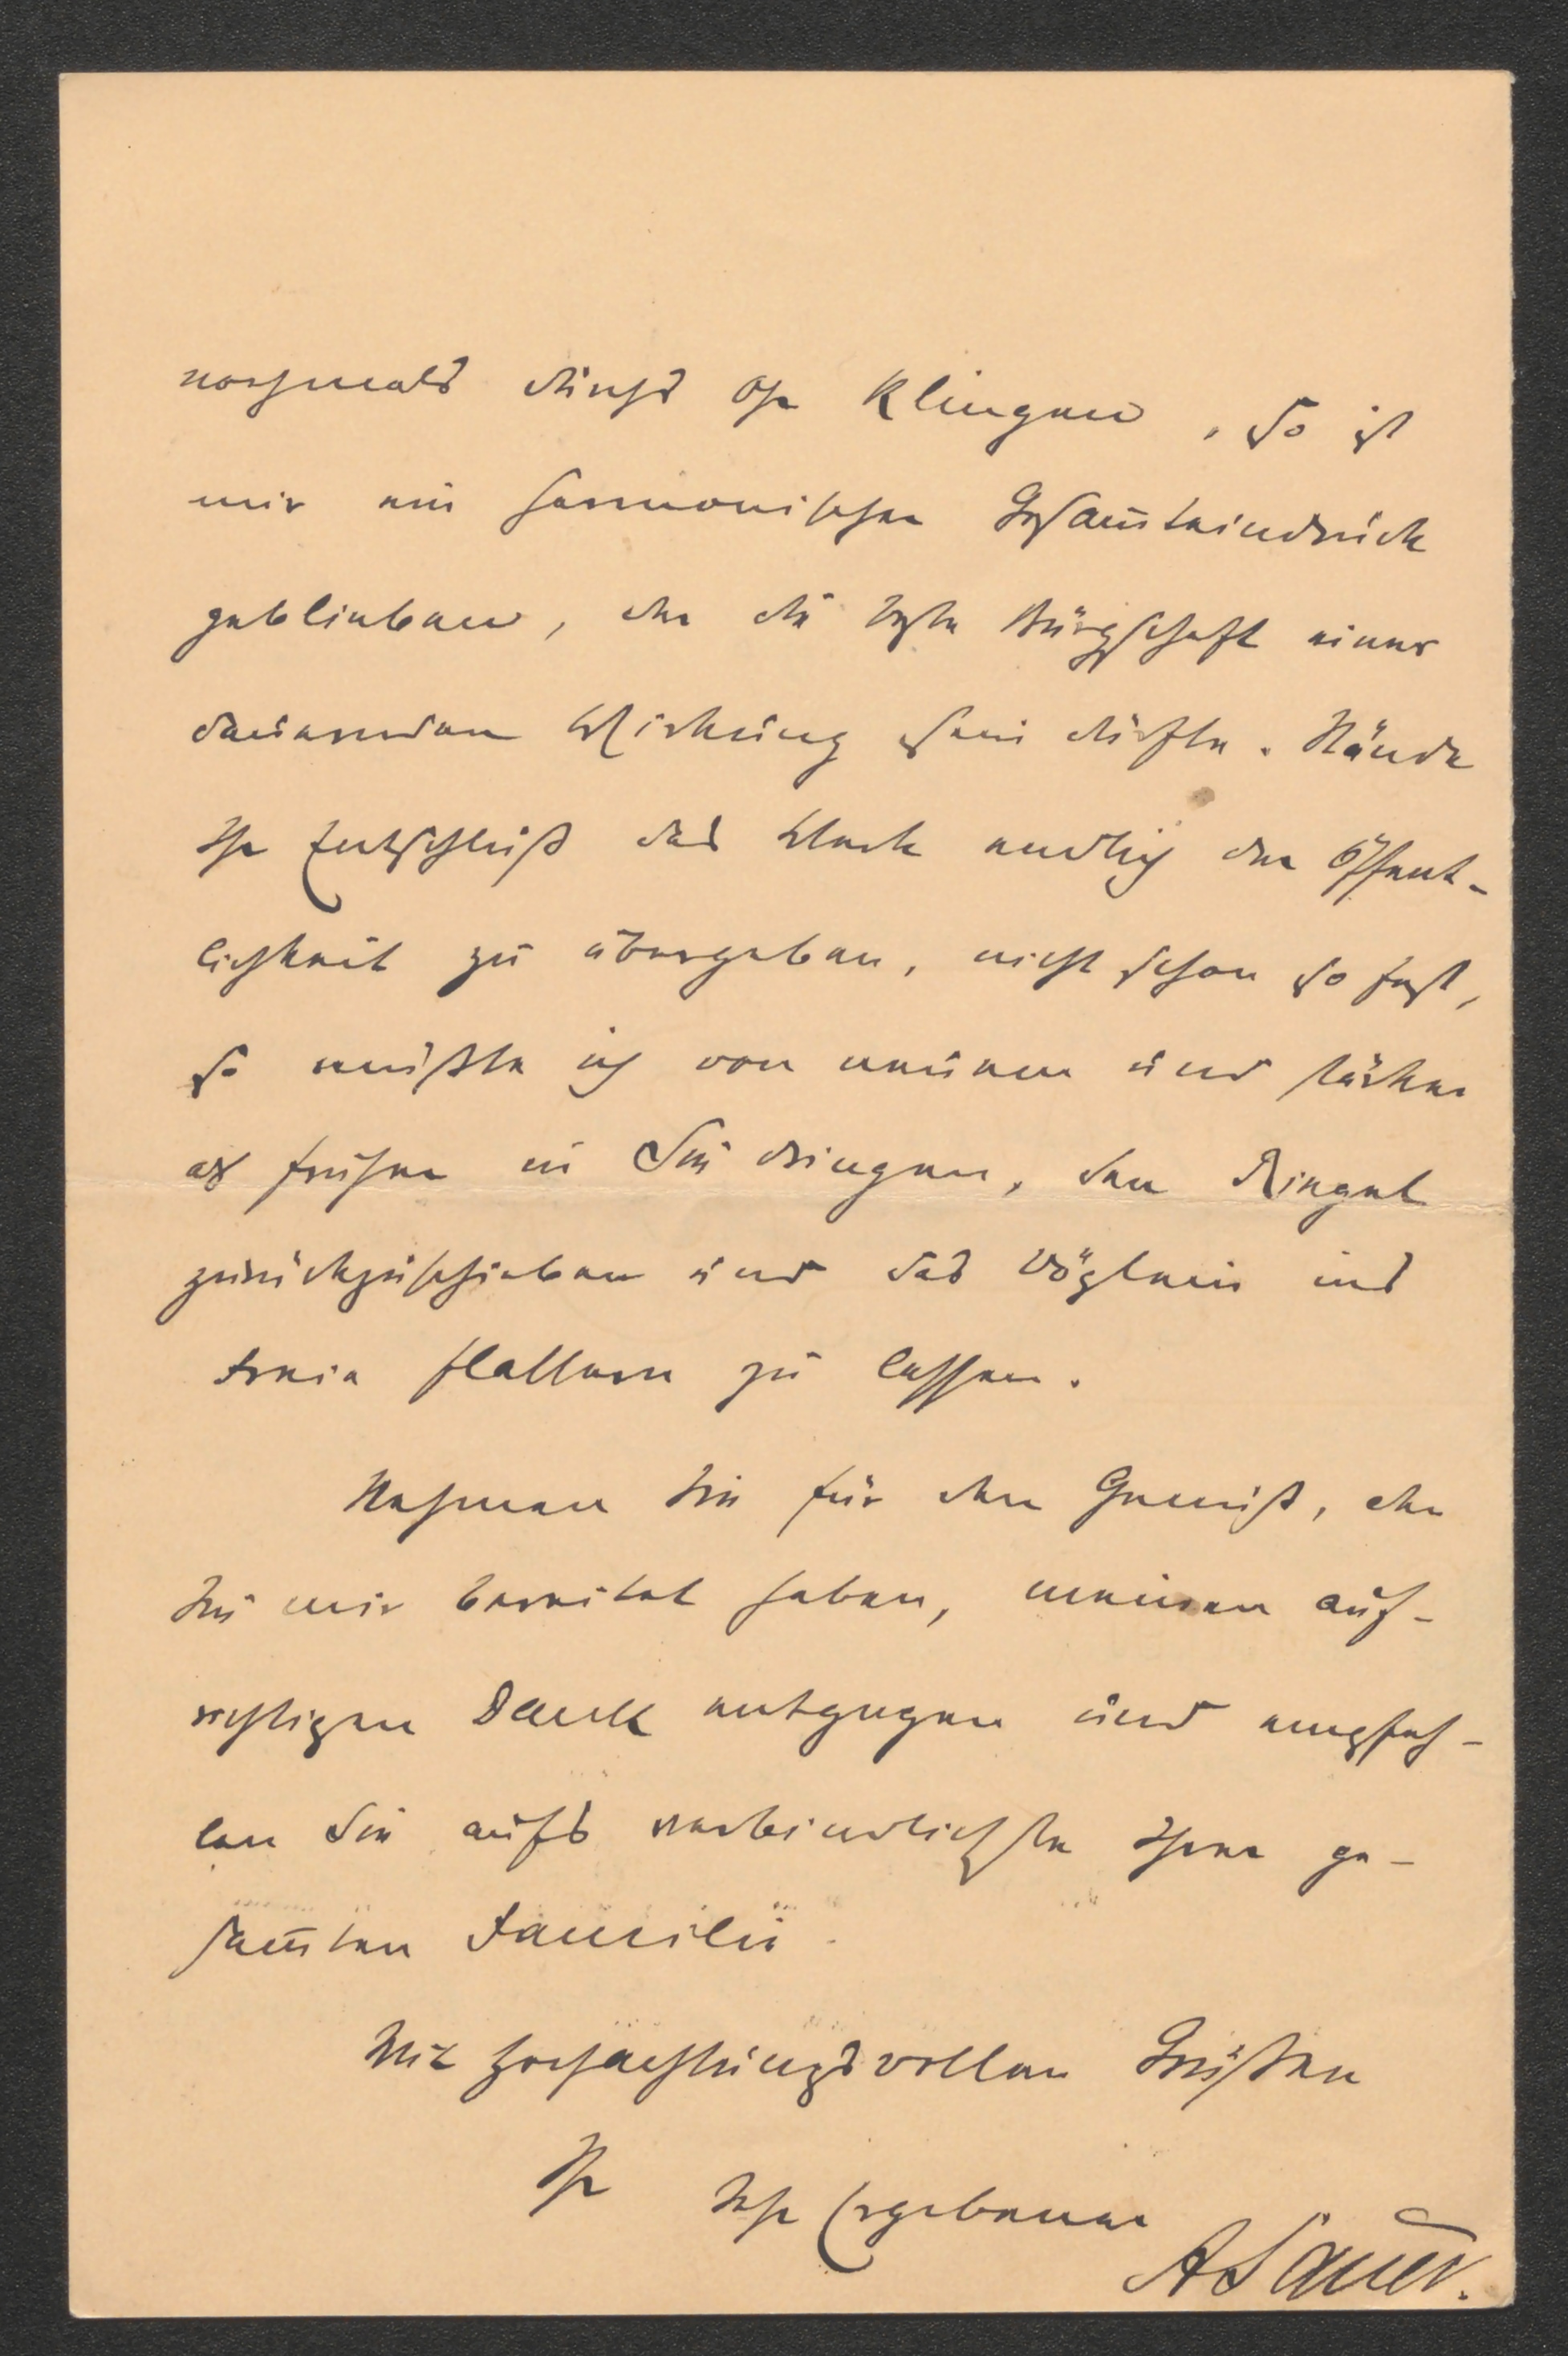 nochmals durchs Ohr klingen, so ist
mir ein harmonischer Gesam̅teindruck
geblieben, der die beste Bürgschaft einer
dauernden Wirkung sein dürfte. Stände
Ihr Entschluß das Werk endlich der Öffent-
lichkeit zu übergeben, nicht schon so fest,
so müßte ich von neuem und stärker
als früher in Sie dringen, den Riegel
zurückzuschieben und das Vöglein ins
Freie flattern zu lassen.
Nehmen Sie für den Genuß, den
Sie mir bereitet haben, meinen auf-
richtigen Dank entgegen und empfeh-
len Sie aufs verbindlichste Ihrer ge-
sam̅ten Familie.
Mit hochachtungsvollen Grüßen
Ihr sehr Ergebener
ASauer.